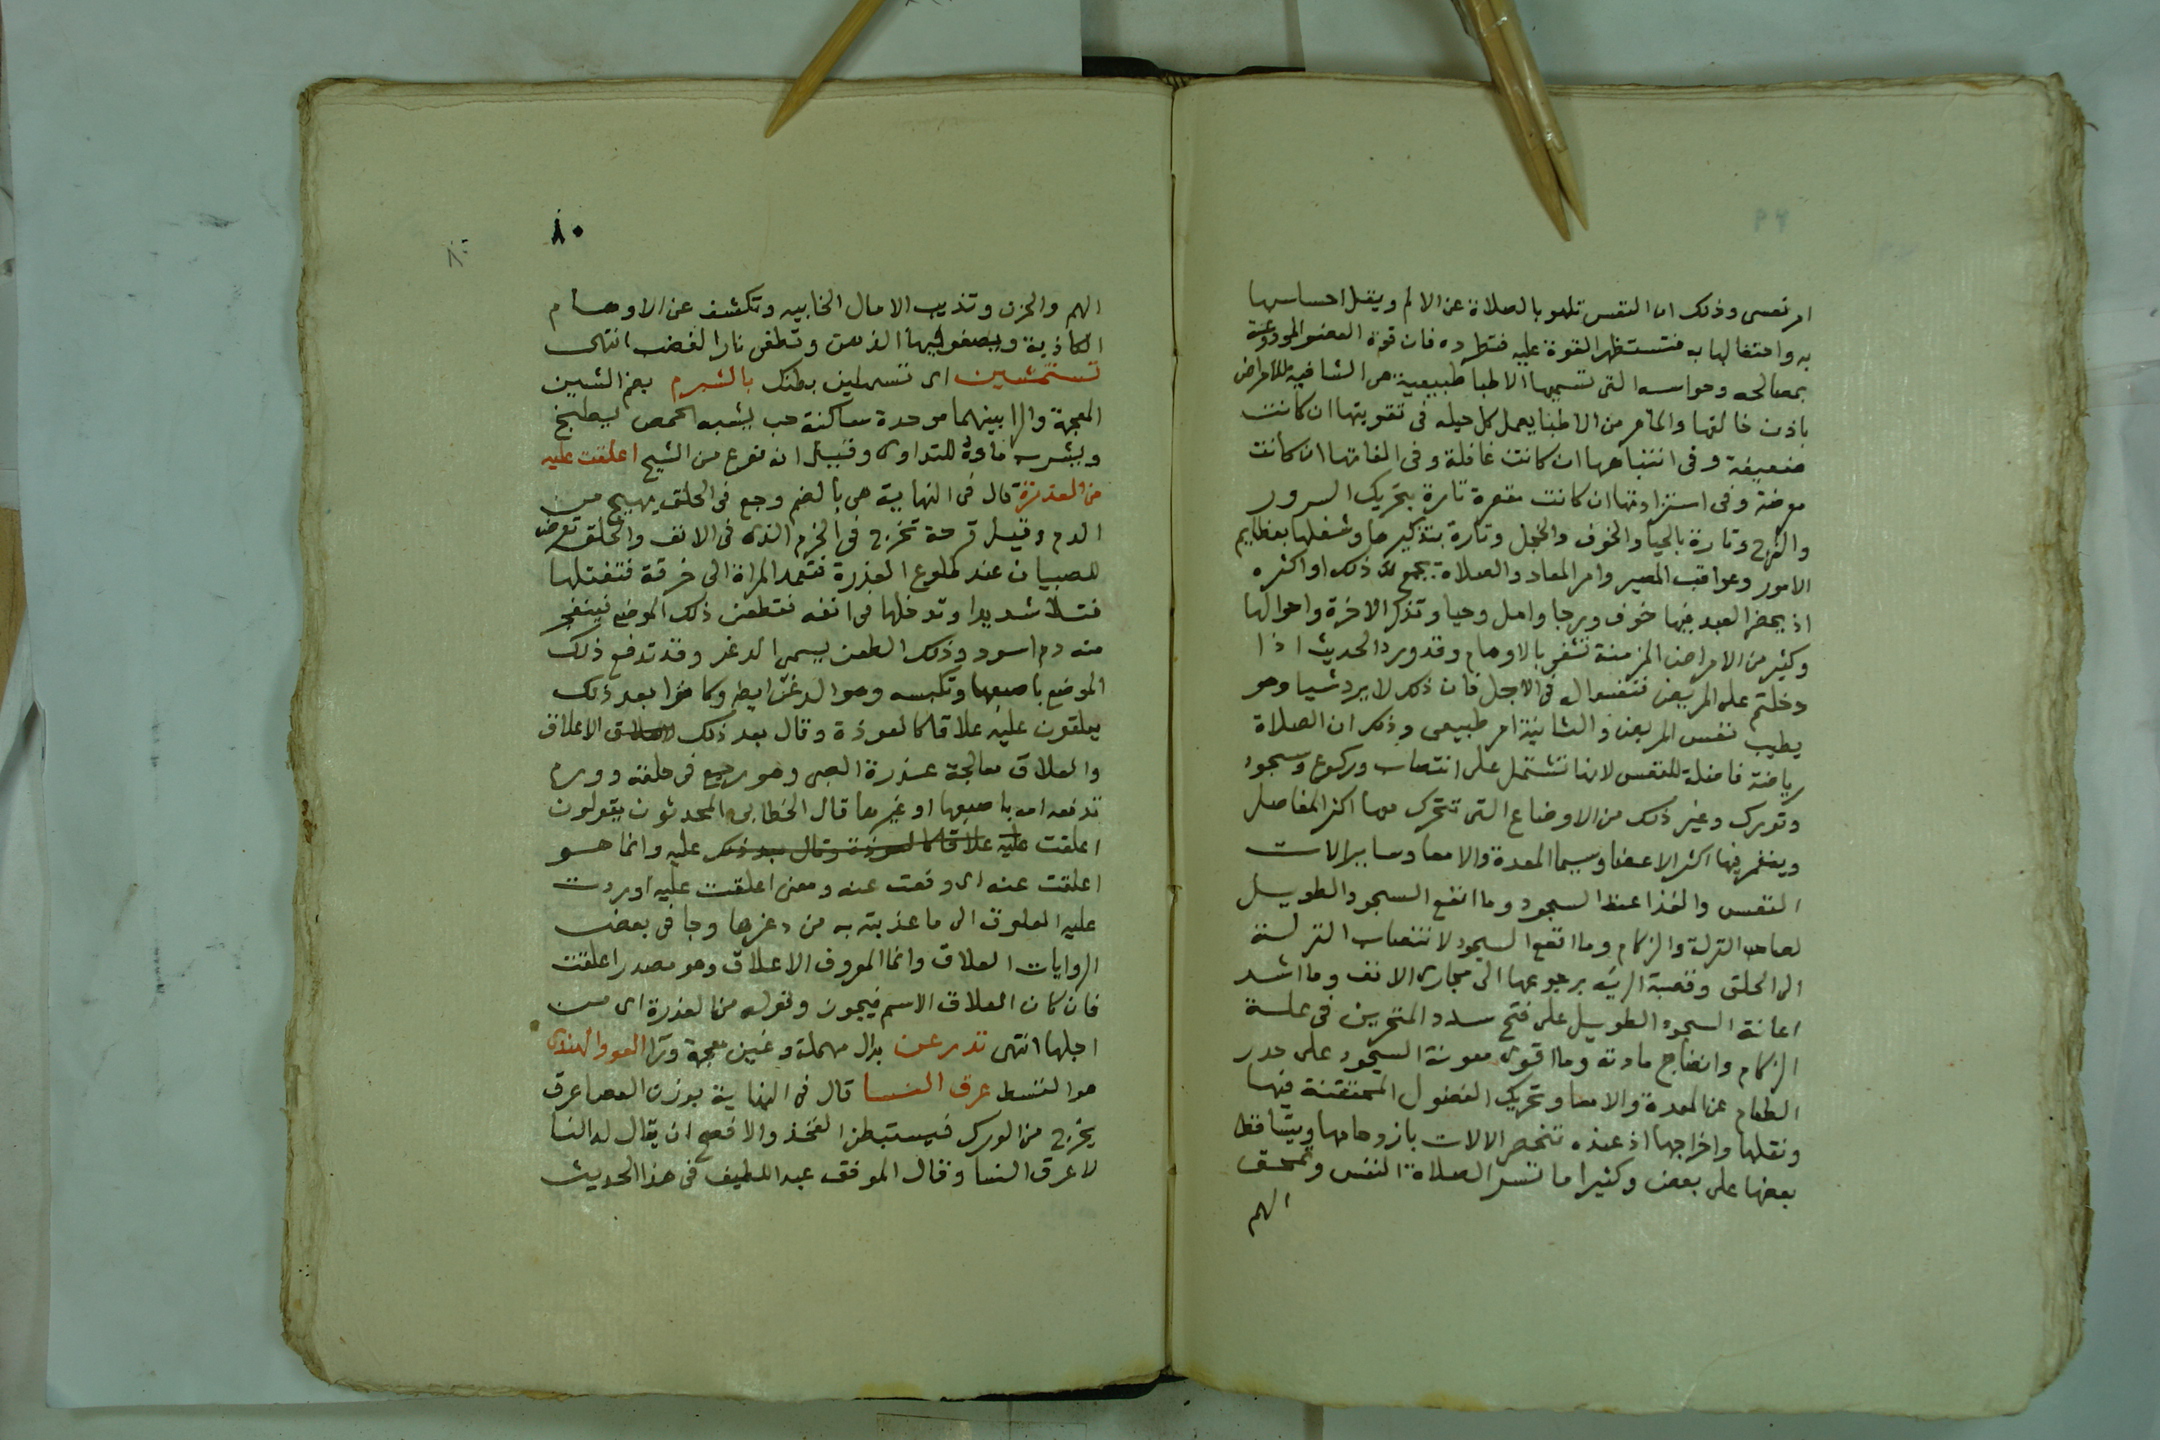 امر نفسى وذلك ان النفس تلهو بالصلاة عن الالم ويقل احساسها
به واحتفالها به فتستظهر القوة عليه فتطرده فان قوة العضو المودعة
بمصالحه وحواسه التى تسميها الاطبا طبيعية هى الشافية للامراض
باذن خالقها والماهر من الاطبا يعمل كل حيله فى تقويتها ان كانت
ضعيفة وفى انتباهها ان كانت غافلة وفى الفاتها ان كانت
معرضة وفى استزادتها ان كانت مقصرة تارة بتحريك السرور
والفرح وتارة بالحيا والخوف والخجل وتارة بتذكيرها وشغلها بعظايم
الامور وعواقب المصير وامر المعاد والصلاة تجمع ذلك او اكثره
اذ يحضر العبد فيها خوف ورجا وامل وحيا وتذكر الاخرة واحوالها
وكثير من الامراض المزمنة تشفى بالاوهام وقد ورد الحديث اذا
دخلتم على المريض فنفسوا له فى الاجل فان ذلك لا يرد شيا وهو
يطيب نفس المريض والثانية امر طبيعى وذلك ان الصلاة
رياضة فاضلة للنفس لانها تشتمل على انتصاب وركوع وسجود
وتورك وغير ذلك من الاوضاع التى تتحرك معها اكثر المفاصل
وينغمر فيها اكثر الاعضا وسيما المعدة والامعا وساير الات
النفس والغذا عند السجود وما انفع السجود الطويل
لصاحب النزلة والزكام وما انفع السجود لانتصاب النزلة
الى الحلق وقصبة الريه برجوعها الى مجارى الانف وما اشد
اعانة السجود الطويل على فتح سدد المنخرين فى علة
الزكام وانضاج مادته وما اقوى معونة السجود على حدر
الطعام عن المعدة والامعا وتحريك الفضول المحتقنة فيها
ونقلها واخراجها اذ عنده تنعصر الالات بازدحامها ويتساقط
بعضها على بعض وكثيرا ما تسر الصلاة النفس وتمحق
الهم
٨٠
٨٠
الهم والحزن وتذيب الامال الخايبه وتكشف عن الاوهام
الكاذبة ويصفو فيها الذهن وتطفى نار الغضب انتهى
تستمشين اى تسهلين بطنك بالشبرم بضم الشين
المعجمة والرا بينهما موحدة ساكنة حب يشبه الحمص يطبخ
ويشرب ماوه للتداوى وقيل انه نوع من الشيح اعلقت عليه
من العذرة قال فى النهاية هى بالضم وجع فى الحلق يهيج من
الدم وقيل قرحة تخرج فى الخرم الذى فى الانف والحلق تعرض
للصبيان عند طلوع العذرة فتعمد المراة الى خرقة فتفتلها
فتلا شديدا وتدخلها فى انفه فتطعن ذلك الموضع فينفجر
منه دم اسود وذلك الطعن يسمى الدغر وقد تدفع ذلك
الموضع باصبعها وتكبسه وهو الدغر ايضا وكانوا بعد ذلك
يعلقون عليه علاقا كالعوذة وقال بعد ذلك الاعلاق
والعلاق معالجة عذرة الصبى وهو وجع فى حلقه وورم
تدفعه امه باصبعها او غيرها قال الخطابى المحدثون يقولون
اعلقت عليه علاقا كالعوذة وقال بعد ذلك عليه وانما هو
اعلقت عنه اى دفعت عنه ومعنى اعلقت عليه اوردت
عليه العلوق اى ما عذبته به من دغرها وجا فى بعض
الروايات العلاق وانما المعروف الاعلاق وهو مصدر اعلقت
فان كان العلاق الاسم فيجوز وقوله من العذرة اى من
اجلها انتهى تدغرن بدال مهملة وغين معجمة ورا العود الهندى
هو القسط عرق النسا قال فى النهاية بوزن العصا عرق
يخرج من الورك فيستبطن الفخذ والافصح ان يقال له النسا
لا عرق النسا وقال الموفق عبد اللطيف فى هذا الحديث